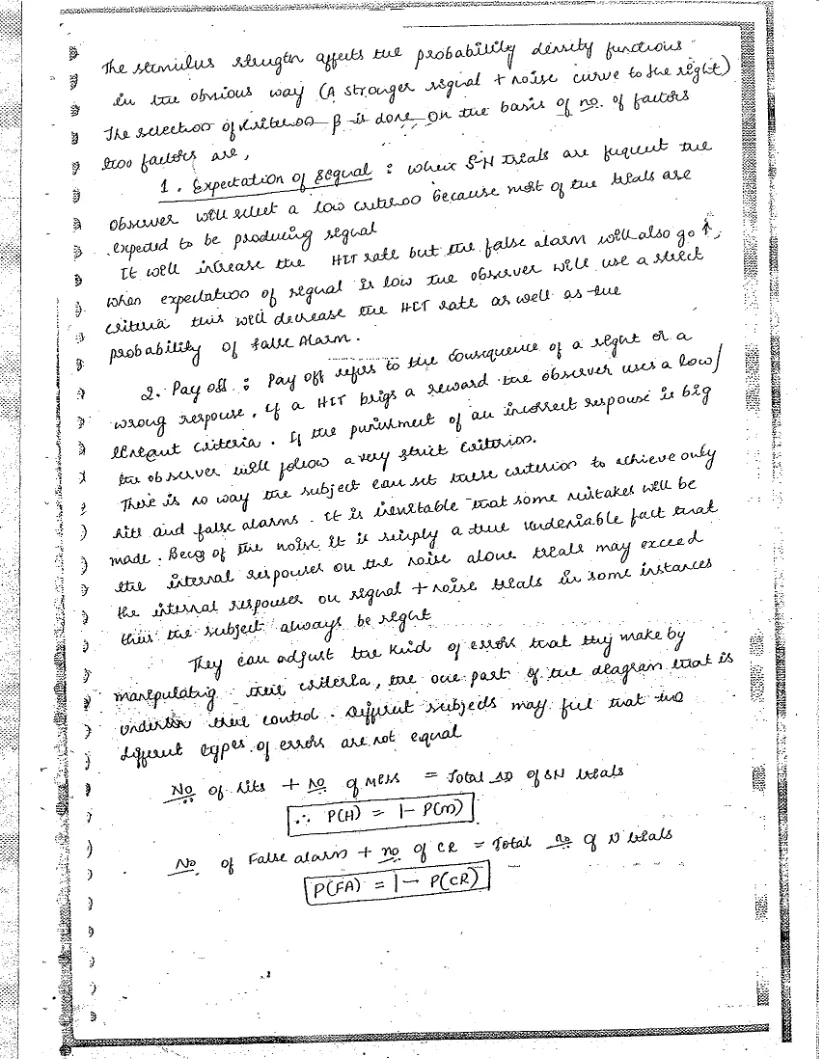 The stimulus strength affects the probability density functions
in the obvious way (A stronger signal + noise curve to the right)
The selection of criterion β is done on the basis of no. of factors
two factors are,
1. Expectation of signal : when S-N trials are fuquent the
observer will select a low criterion because most of the trials are
expected to be producing signal
It will increase the HIT rate but the false alarm will also go ↑,
when expectation of signal is low the observer will use a strict
criteria this will decrease the HIT rate as well as the
probability of false Alarm.
2. Pay off : Pay off refers to the consequence of a right or a
wrong response, if a HIT brigs a reward the observer uses a low/
criteria. If the punishment of an incorrect response is big
the observer will follow a very strict criterion.
There is no way the subject can set these criterion to achieve only
hits and false alarms. It is inevitable that some mistakes will be
made. Becg of the noise it is simply a true undeniable fact that
the internal responses on the noise alone trials may exceed
the internal responses on signal + noise trials in some instances
thus the subject always be right
They can adjust the kind of errors that they make by
manipulating their criteria, the one part of the diagram that is
under their control. Different subjects may ful that two
different types of errors are not equal
No of hits + no of Miss = Total no of SN trials
∴ P(H) = 1- P(m)
No of False alarm + no of CR = Total no of N trials
P(FA) = 1- P(CR)